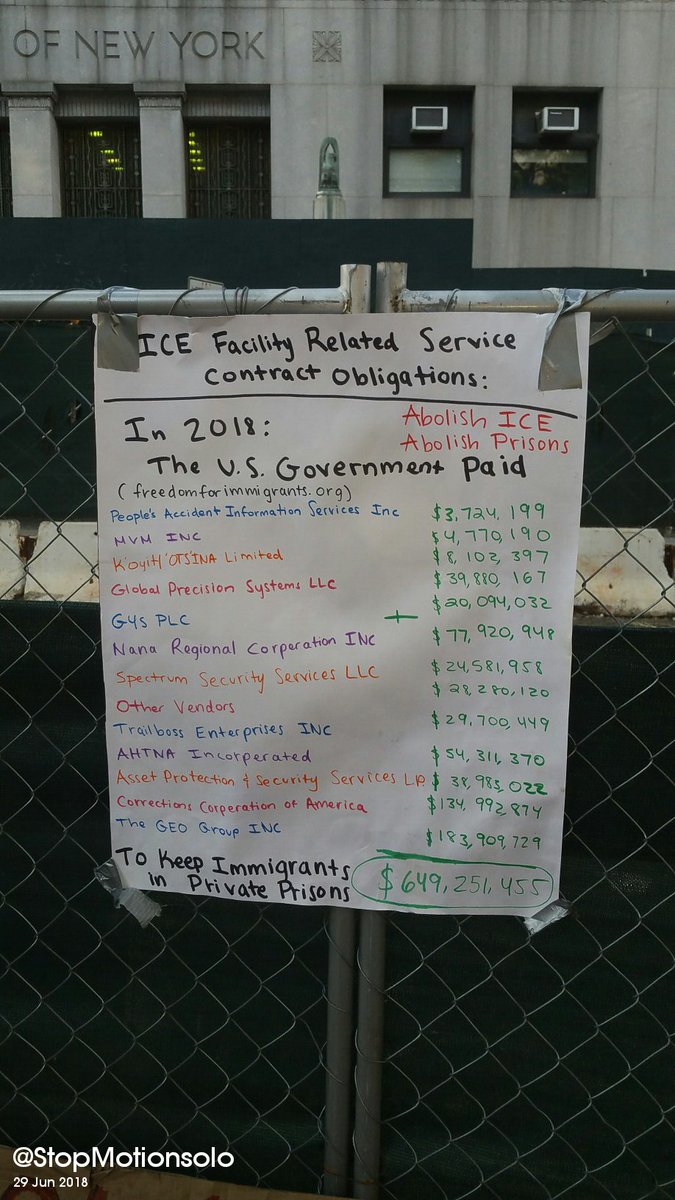 OF NEW YORK
ICE Facility Related Service
Contract Obligations:
In 2018:
Abolish ICE
Abolish Prisons
The U.S. Government Paid
(freedomforimmigrants.org)
People's Accident Information Services Inc $3,724,199
MVM INC $4,770,190
K'oyitł'ots'ina Limited $8,102,397
Global Precision Systems LLC $39,880,167
G4s PLC $20,094,032
+
Nana Regional Corperation INC $77,920,948
Spectrum Security Services LLC $24,581,958
Other Vendors $28,280,120
Trailboss Enterprises INC $29,700,449
AHTNA Incorperated $54,311,370
Asset Protection & Security Services L.P. $38,985,022
Corrections Corperation of America $134,992,874
The GEO Group INC $183,909,729
To Keep Immigrants
in Private Prisons $649,251,455
@StopMotionsolo
29 Jun 2018